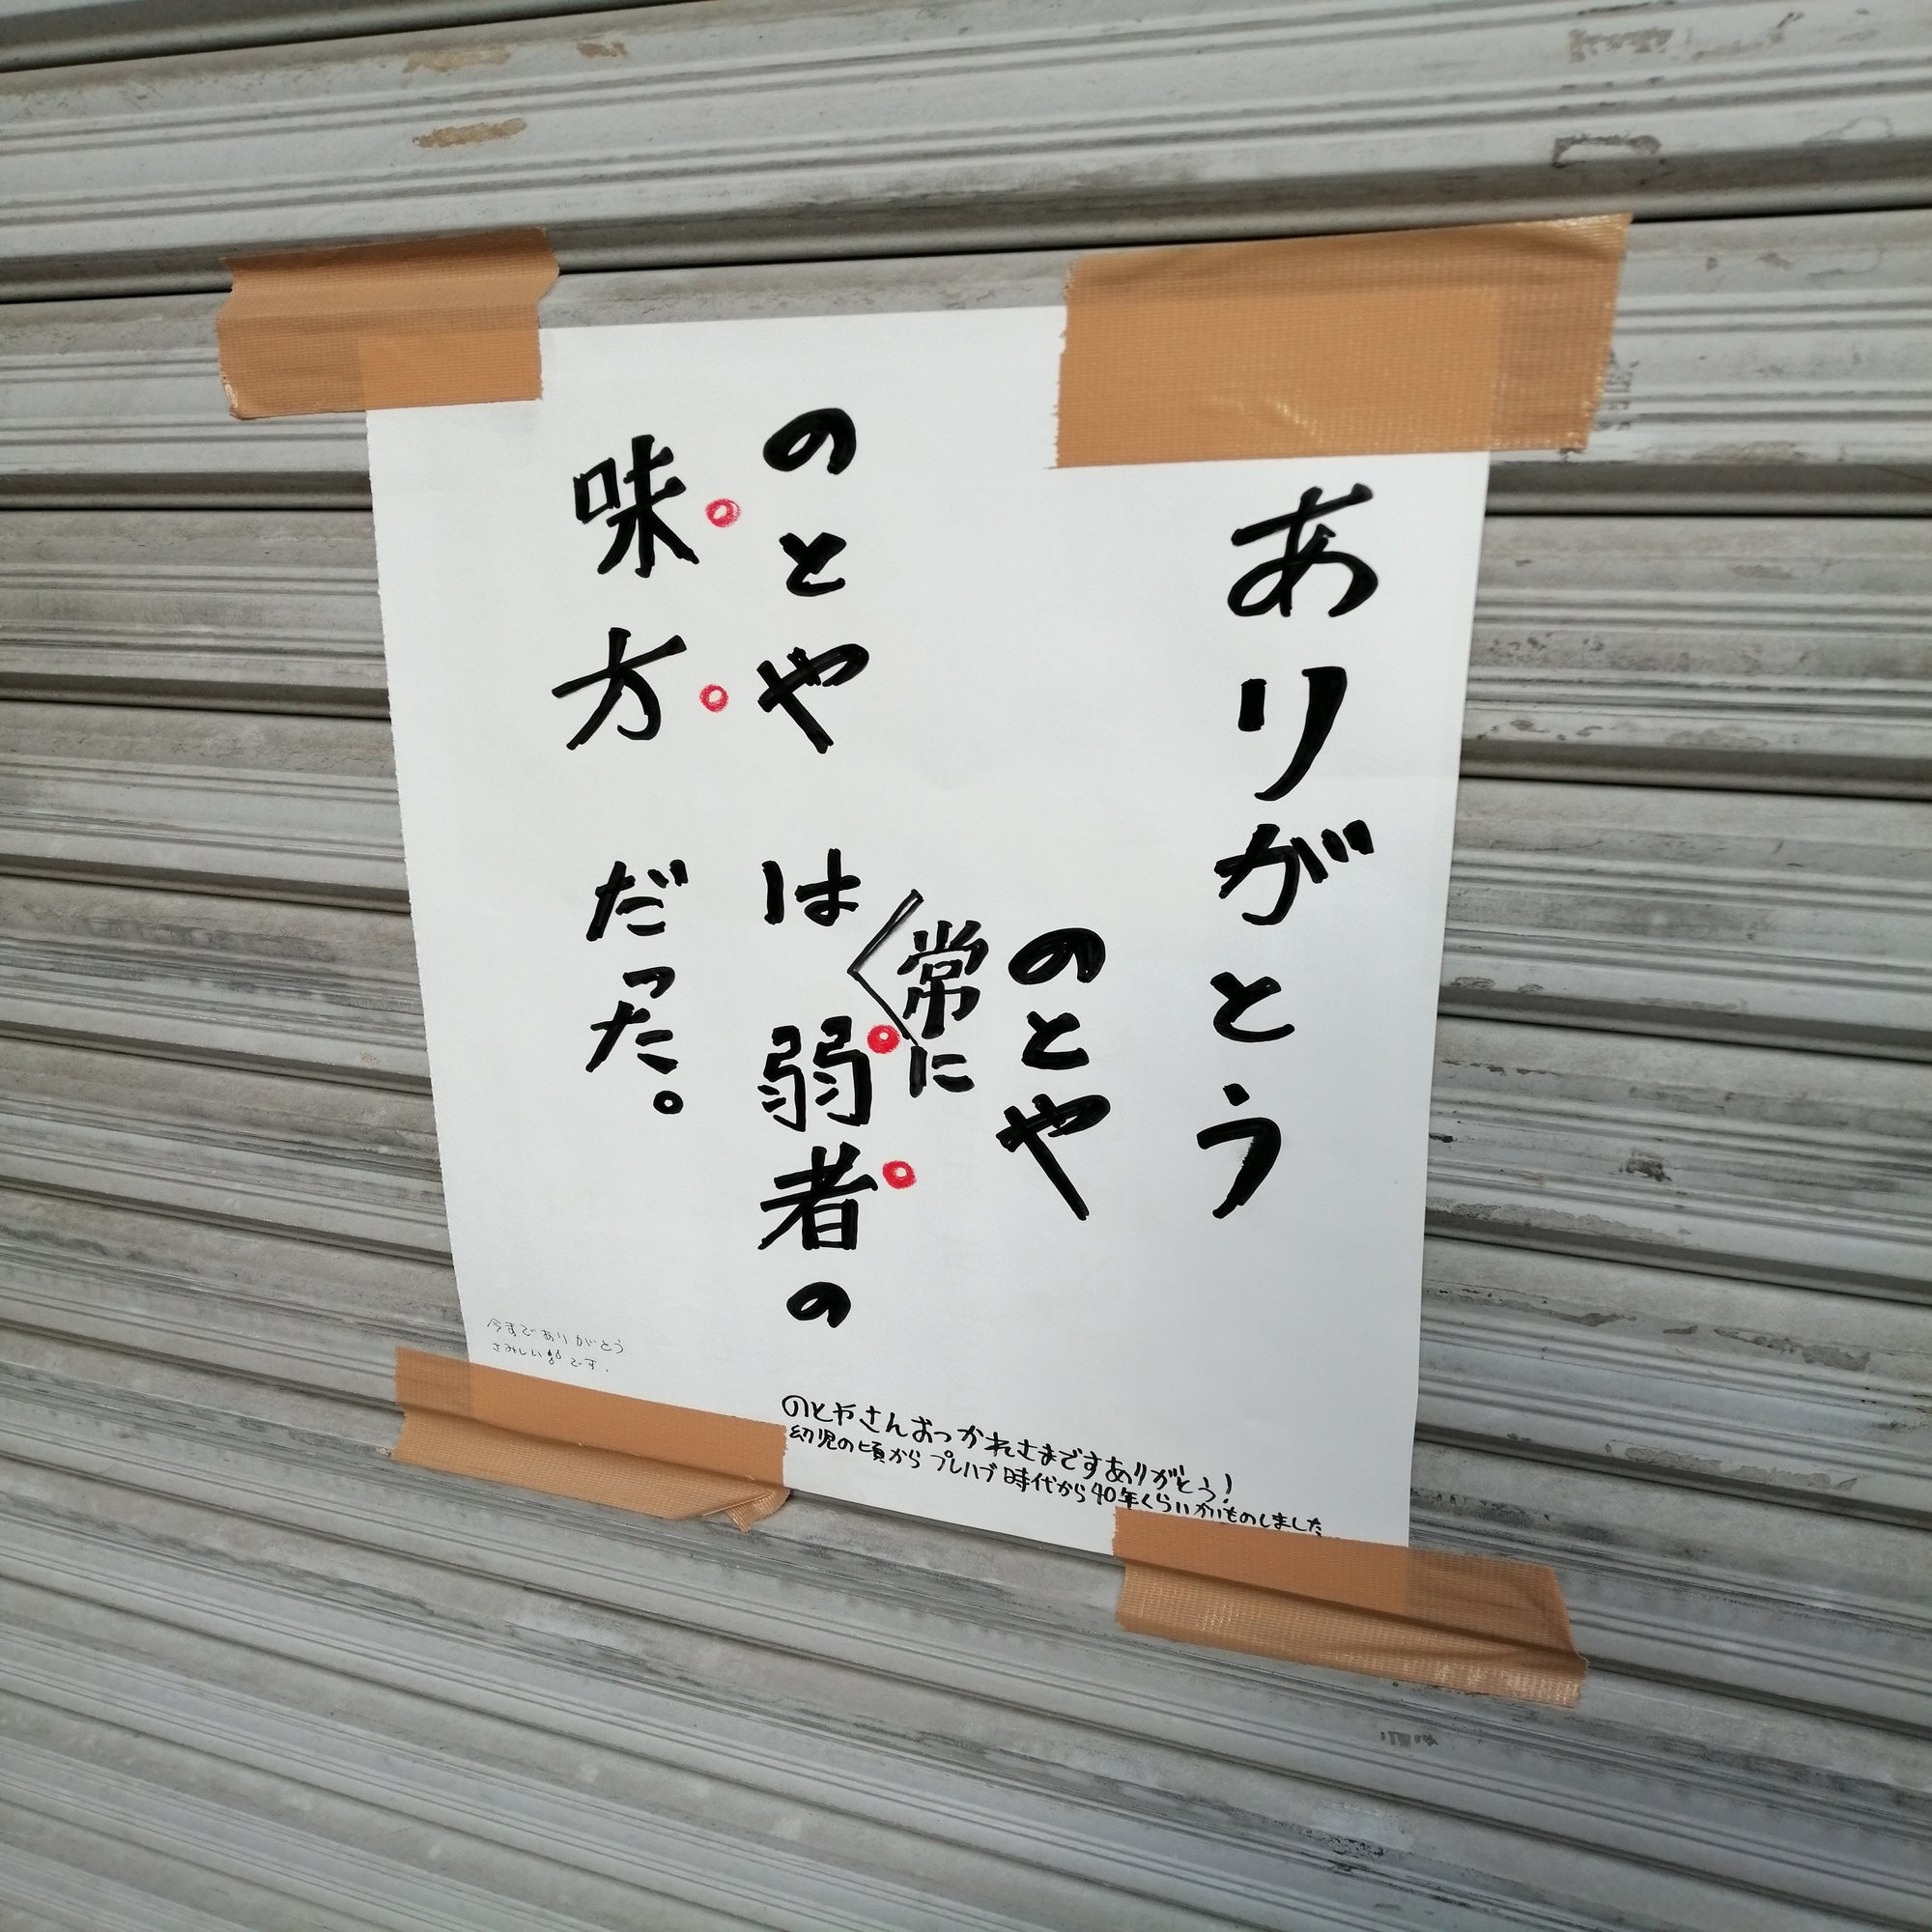 ありがとう
のとや
のとやは常に弱者の
味方だった。
今までありがとう
さみしいです.
のとやさんおつかれさまですありがとう!
幼児の頃からプレハブ時代から40年くらいかいものしました